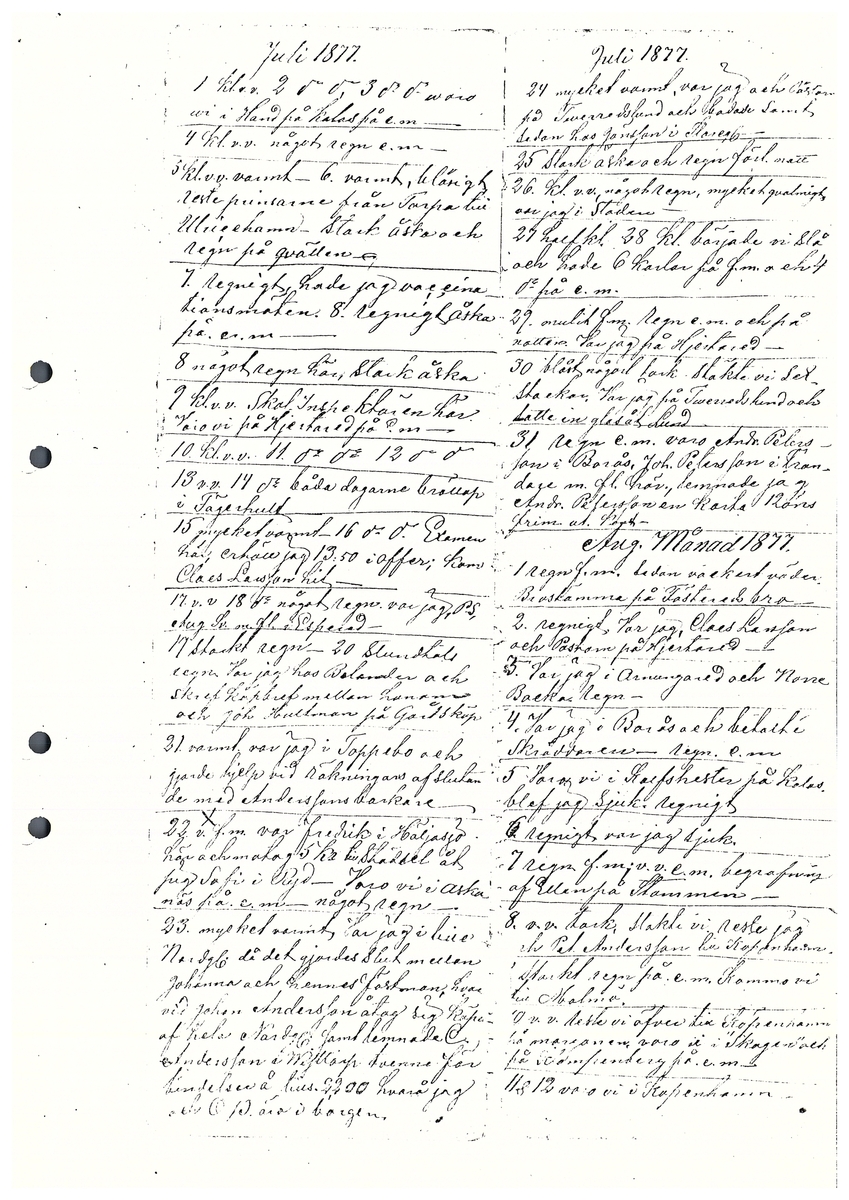 Juli 1877.
1 kl. v.v. 2 d° d°, 3 d° d° woro
wi i Hand på Kalas på e.m
4 kl. v.v. något regn e.m
5 kl. v.v. varmt – 6. varmt, blåsigt
reste prinsarne från Torpa till
Ulricehamn – Stark åska och
regn på qvällen
7. regnigt, hade jag vaccina
tionsmöten. 8. regnigt, åska
på e.m
8 något regn här, Stark åska
9 kl. v.v. Skol Inspektören här.
Voro vi på Hjertared på e.m
10. kl. v.v. 11. d° d° 12 d° d°
13 v.v. 14 d° båda dagarne bröllop
i Tågerhult
15 mycket varmt – 16 d° d°. Examen
här, erhöll jag 13.50 i offer; kom
Claes Larsson hit
17 v.v 18 d° något regn. var jag, P.S,
Aug. Sv. m.fl. i Espered
17 starkt regn – 20 Stundtals
regn. Var jag hos Bolander och
skref köpbref mellan honom
och Joh Hultman på Gårdsköp
21. varmt, var jag i Toppebo och
gjorde hjelp vid räkningars afslutan
de med Anderssons
22 v. f.m. var Fredrik i Häljasjö
här och mottog 5 kr till Städsel åt
pig Sofi i Ryd – Voro vi i Aska
näs på e.m – något regn
23. mycket varmt, Var jag i lille
Nordg. då det gjordes slut mellan
Johanna och hennes fästman, hvar
vid Johan Andersson åtog sig köpe
af hela Nordg. samt lemnade C,
Andersson i tvenne för
bindelser å tills. 2200 hvarå jag
och C P. äro i borgen.
Juli 1877.
24 mycket varmt, var jag och
på Tweredslund och badade samt
sedan hos Jonsson i
25 Stark åska och regn förl. natt
26. kl. v.v. något regn, mycket qvalmigt
var jag i Staden
27 half kl. 28 kl. började vi Slå
och hade 6 karlar på f.m. och 4
d° på e.m.
29. mulit f.m. regn e.m. och på
natten. Var jag på Hjertared
30 blåst någott tork slåkte vi
Stackar, Var jag på Tweredslund och
satte in glas åt Lund
31 regn e.m. varo Andr. Peters-
son i Borås, Joh. Petersson i Tran-
dage m. fl. här, lemnade jag
Andr. Petersson en karta 12öns
frim. at.
Aug. Månad 1877.
1 regn f.m. sedan vackert väder.
Brostämma på Tösteredsbro
2. regnigt Var jag, Claes Larsson
och Påstom på Hjertared
3. Var jag i Arnungared och Norre
Backa. regn –
4. Var jag i Borås och betalt
Skräddaren – regn. e.m
5 Voro vi i Kalfshester på Kalas.
blef jag Sjuk. regnigt
6 regnigt var jag sjuk.
7 regn f.m; v.v. e.m. begrafning
af Ellen på Stommen
8. v.v. tork, slåkte vi, reste jag
och Pet. Andersson till Kopenhamn.
Starkt regn på e.m. Kommo vi
till Malmö.
v.v. reste vi öfver till Kopenhamn
på morgonen, voro vi i Skogen och
på Klampenberg på e.m
11 & 12 varo vi i Kopenhamn